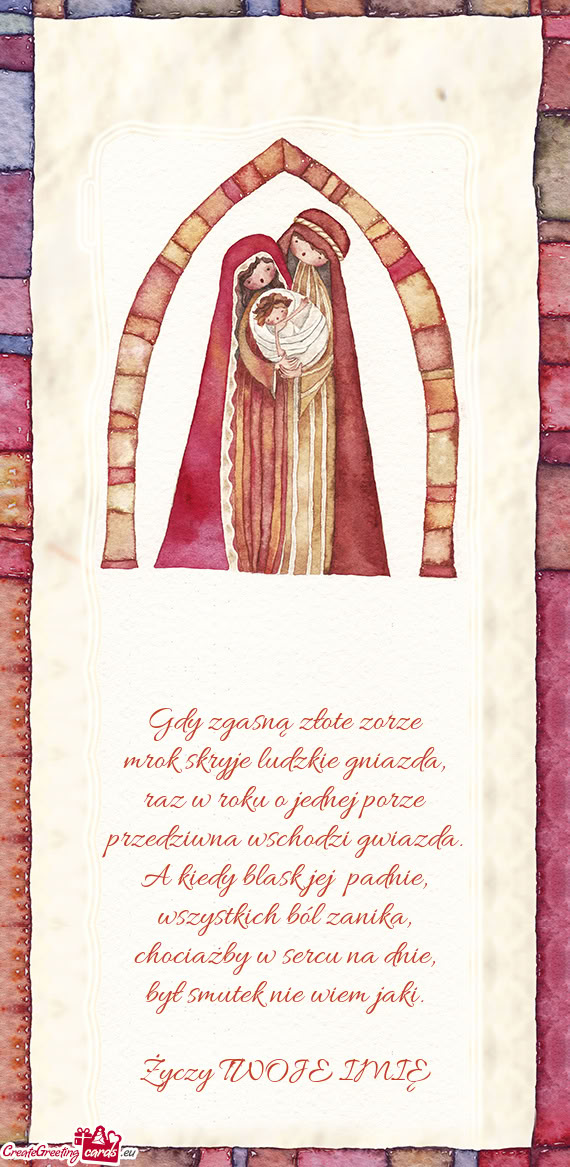 Gdy zgasną złote zorze
mrok skryje ludzkie gniazda,
raz w roku o jednej porze
przedziwna wschodzi gwiazda.
A kiedy blask jej padnie,
wszystkich ból zanika,
chociażby w sercu na dnie,
był smutek nie wiem jaki.
Życzy TWOJE IMIĘ
CreateGreeting cards .eu